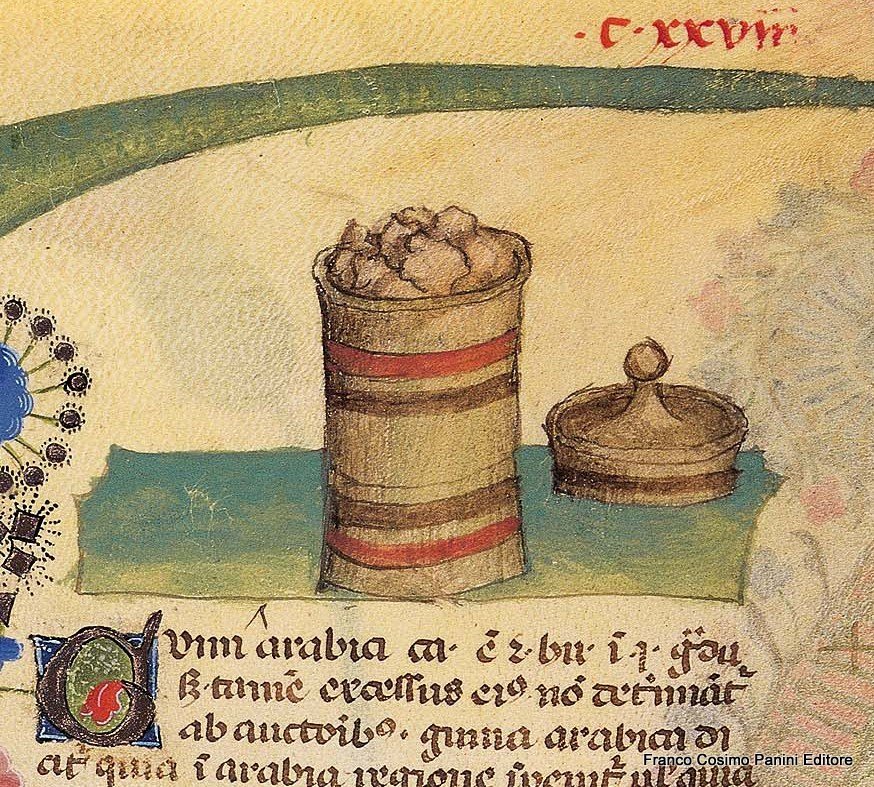 ·C·xxviii
Gumi arabici ca· ē ⁊· hu· ī ·j· g̃du
ß· tamē excessus eiꝰ nō det̃minãt̃
ab auctoibꝰ · gumа arabici di
cat̃ quia ī arabia regione īvenit̃ ul' quia
Franco Cosimo Panini Editore